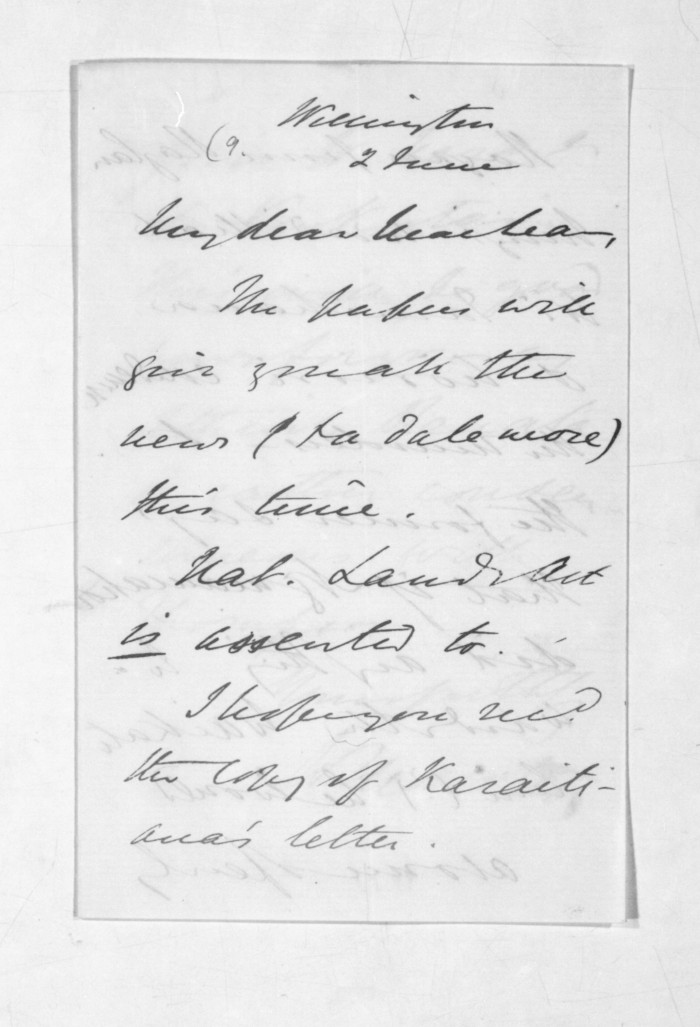 Wellington
(9.
2 June
My dear Maclean,
The papers will
give you all the
news (& to date more)
this time.
Nat. Lands Act
is assented to.
I hope you recd
the copy of Karaiti-
ana's letter.